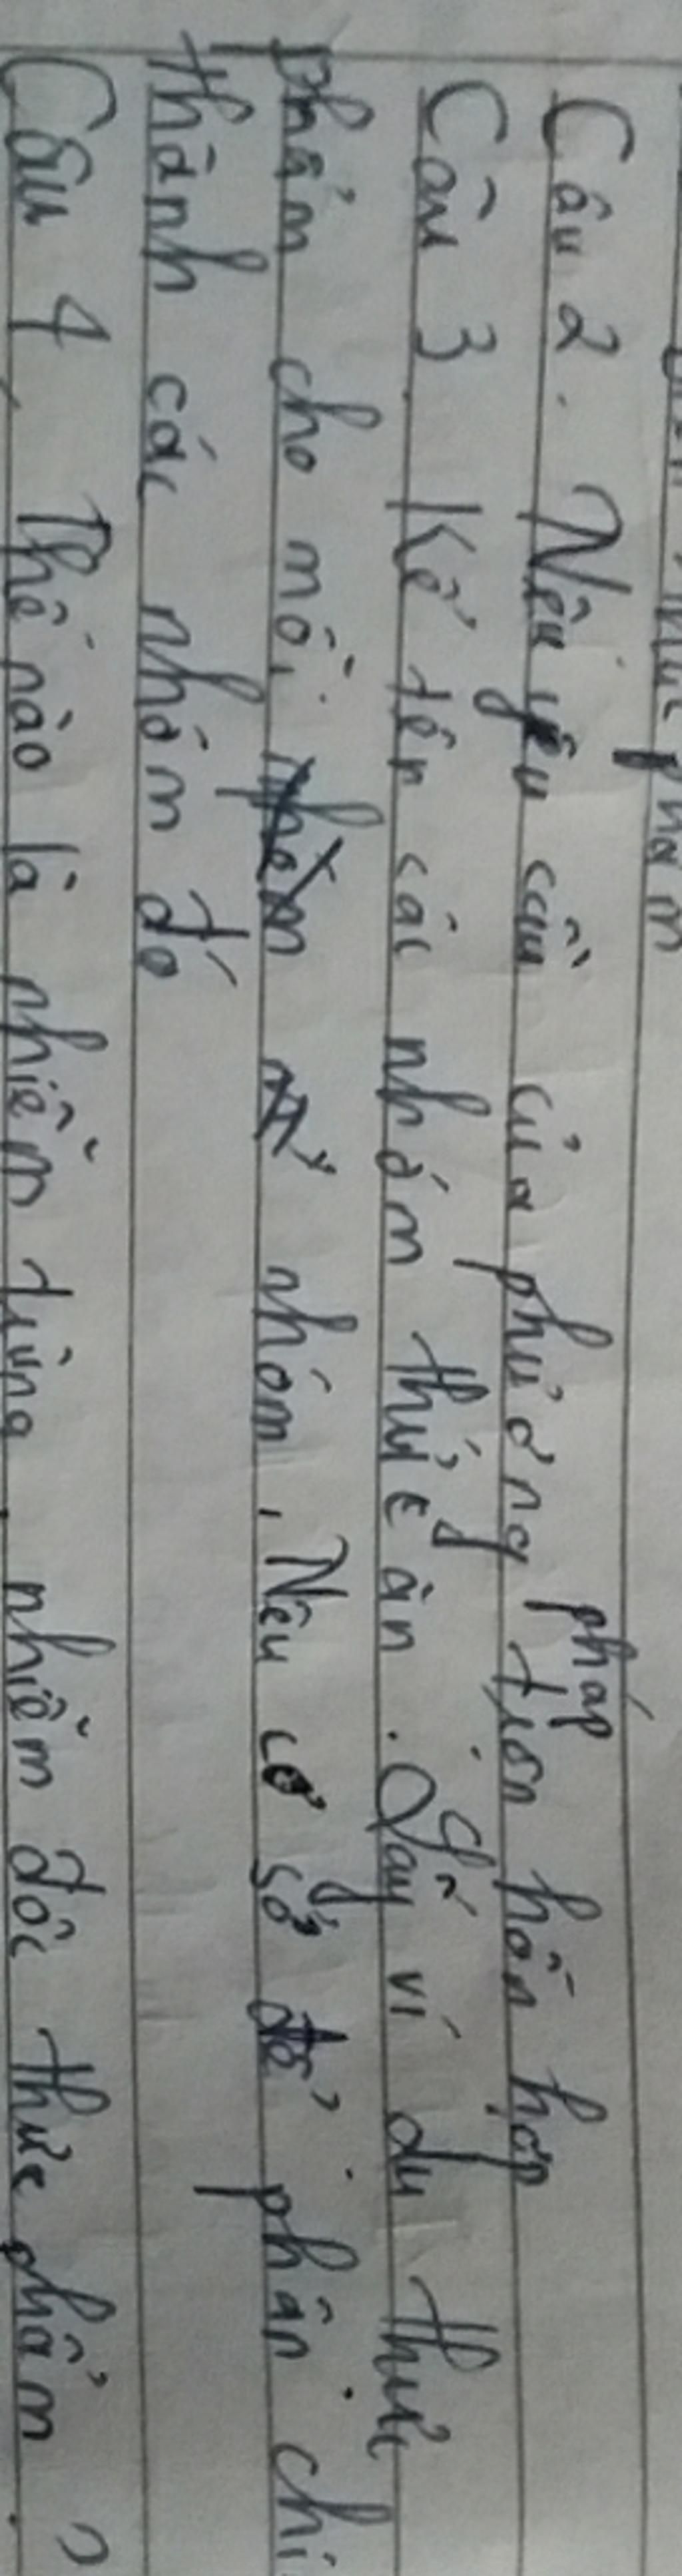 phẩm
Câu 2. Nêu yêu cầu của phương pháp trộn hỗn hợp
Câu 3 Kể tên các nhóm thức ăn. Lấy ví dụ thức
phẩm cho mỗi nhóm, Nêu cơ sở để phân chi
thành các nhóm đó
Câu 4, Thế nào là nhiễm trùng, nhiễm độc thức phẩm?